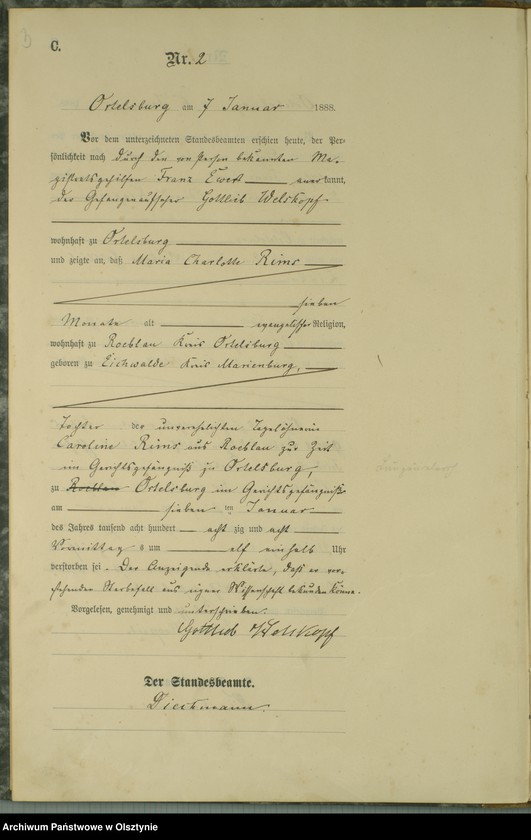 C.
Nr. 2
Ortelsburg am 7 Januar 1888.
Vor dem unterzeichneten Standesbeamten erschien heute, der Per-
sönlichkeit nach durch den von Person bekannten Ma-
gistratsgehilfen Franz Ewert anerkannt,
der Gefangenaufseher Gottlieb Welskopf
wohnhaft zu Ortelsburg
und zeigte an, daß Maria Charlotte Rims
sieben
Monate alt evangelischer Religion,
wohnhaft zu Kreis Ortelsburg
geboren zu Eichwalde Kreis Marienburg,
Tochter der unverehelichten Tagelöhnerin
Caroline Rims aus zur Zeit
im Gerichtsgefängniß zu Ortelsburg,
zu Ortelsburg im Gerichtsgefängniß
am sieben ten Januar
des Jahres tausend acht hundert acht zig und acht
Vormittags um elf einhalb Uhr
verstorben sei. Der Anzeigende erklärte, daß er vor-
stehenden Sterbefall aus eigener Wissenschaft bekunden könne.
Vorgelesen, genehmigt und unterschrieben.
Gottlieb Welskopf
Der Standesbeamte.
Dieckmann.
Archiwum Państwowe w Olsztynie